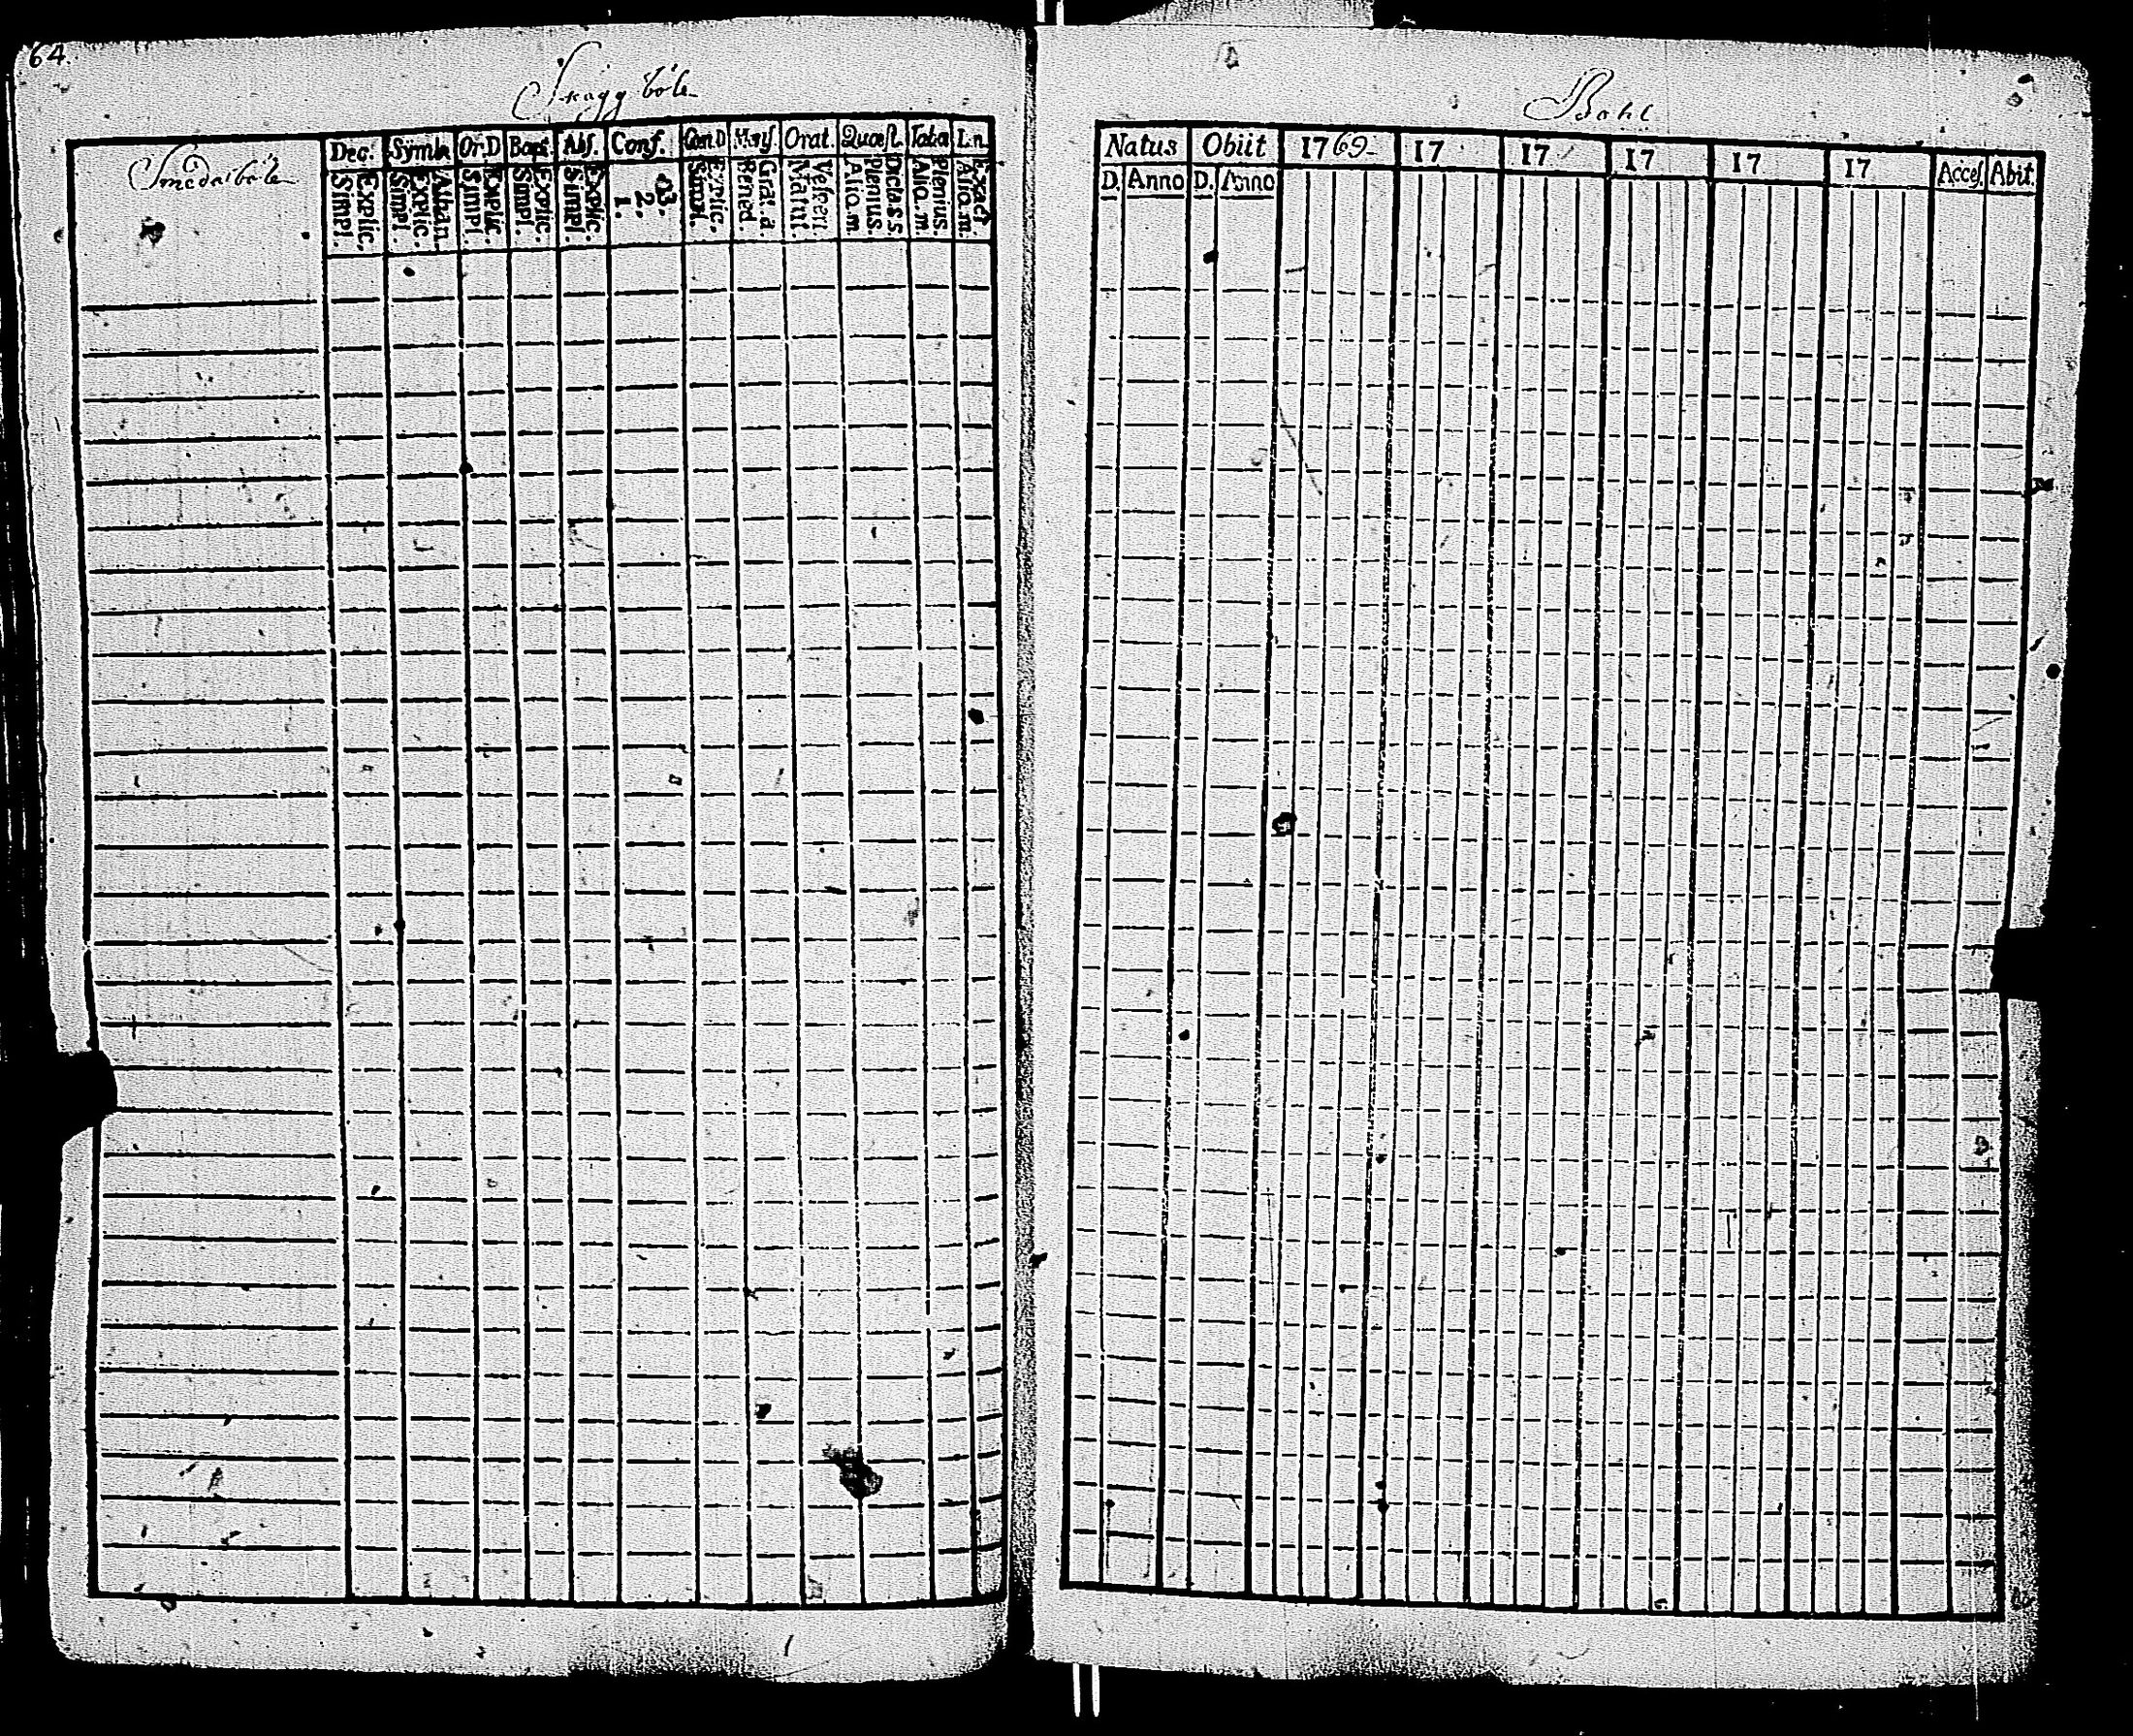 64.
Skaggböle
Smedsböle
Dec. Symb. Or.D Bapt. Abs. Conf. Cœn.D Mens. Orat. Quæst. Taba L.n.
Explic. Simpl. Athan. Explic. Simpl. Explic. Simpl. Explic. Simpl. Explic. Simpl. 3. 2. 1. Explic. Simpl. Grat. a. Bened. Vesper. Matut. Dicta S.S. Plenius. Alio.m Plenius. Alio.m Exact. Alio.m
Bohl
Natus Obiit 1769 17 17 17 17 17 Acces. Abit.
D. Anno D. Anno